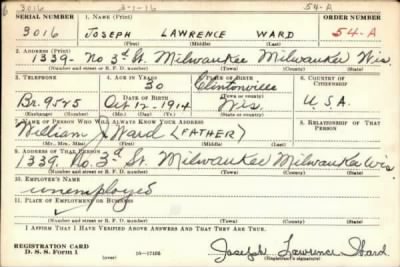 3016 3-1-16 54-A
SERIAL NUMBER 1. NAME (Print) ORDER NUMBER
3016 JOSEPH LAWRENCE WARD 54-A
(First) (Middle) (Last)
2. ADDRESS (Print)
1339- No 3rd St. Milwaukee Milwaukee Wis.
(Number and street or R. F. D. number) (Town) (County) (State)
3. TELEPHONE 4. AGE IN YEARS 5. PLACE OF BIRTH 6. COUNTRY OF CITIZENSHIP
30 Clintonville
DATE OF BIRTH (Town or county)
Br. 9525 Oct 12 1914 Wis. U.S.A.
(Exchange) (Number) (Mo.) (Day) (Yr.) (State or country)
7. NAME OF PERSON WHO WILL ALWAYS KNOW YOUR ADDRESS 8. RELATIONSHIP OF THAT PERSON
William J. Ward (FATHER)
(Mr., Mrs., Miss) (First) (Middle) (Last)
9. ADDRESS OF THAT PERSON
1339. No. 3rd St. Milwaukee Milwaukee Wis.
(Number and street or R. F. D. number) (Town) (County) (State)
10. EMPLOYER'S NAME
unemployed
11. PLACE OF EMPLOYMENT OR BUSINESS
(Number and street or R. F. D. number) (Town) (County) (State)
I AFFIRM THAT I HAVE VERIFIED ABOVE ANSWERS AND THAT THEY ARE TRUE.
REGISTRATION CARD
D. S. S. Form 1 16-17105 Joseph Lawrence Ward
(Registrant's signature)